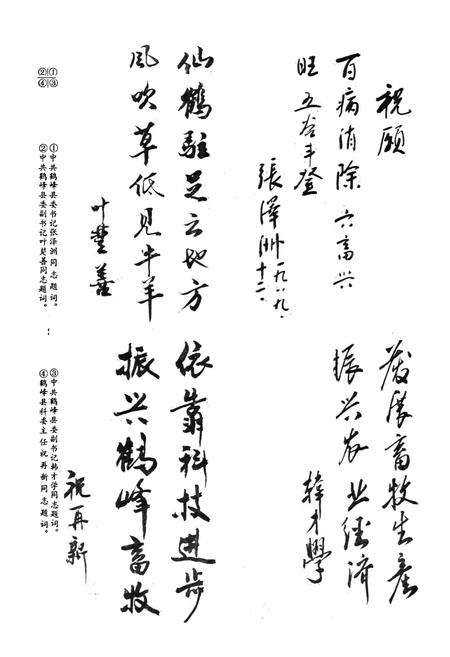 祝愿
百病消除 六畜兴
旺 五谷丰登
張澤洲 一九八九、
十二、
仙鶴駐足云地方
風吹草低見牛羊
叶楚善
发展畜牧生產
振兴农业经济
韓才學
依靠科技进步
振兴鶴峰畜牧
祝再新
②①
④③
①中共鹤峰县委书记张泽洲同志题词。
②中共鹤峰县委副书记叶楚善同志题词。
③中共鹤峰县委副书记韩才学同志题词。
④鹤峰县科委主任祝再新同志题词。